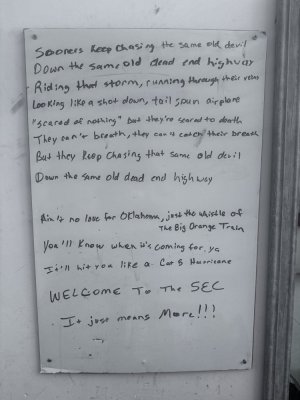 Sooners Keep chasing the same old devil
Down the same old dead end highway
Riding that storm, running through their veins
Looking like a shot down, tail spun airplane
"scared of nothing" but they're scared to death
They can't breath, they can't catch their breath
But they Keep Chasing that same old devil
Down the same old dead end highway
Ain't no love for Oklahoma, just the whistle of
The Big Orange Train
You'll Know when it's coming for ya
It'll hit you like a Cat 5 Hurricane
WELCOME To The SEC
It just means More!!!